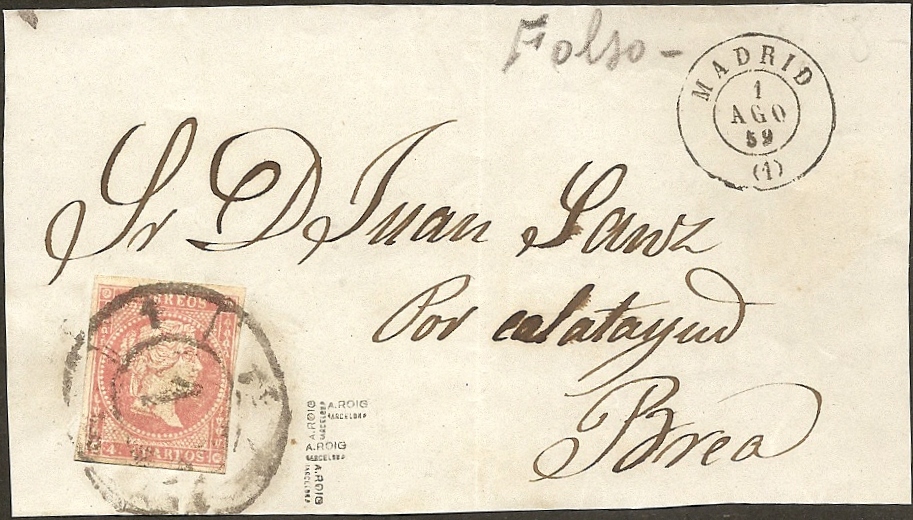 Falso -
MADRID
1
AGO
59
(1)
Sr D Juan Sanz
Por calatayud
Brea
CORREOS
1
4 CUARTOS
A.ROIG
BARCELONA
A.ROIG
BARCELONA
A.ROIG
BARCELONA
A.ROIG
BARCELONA